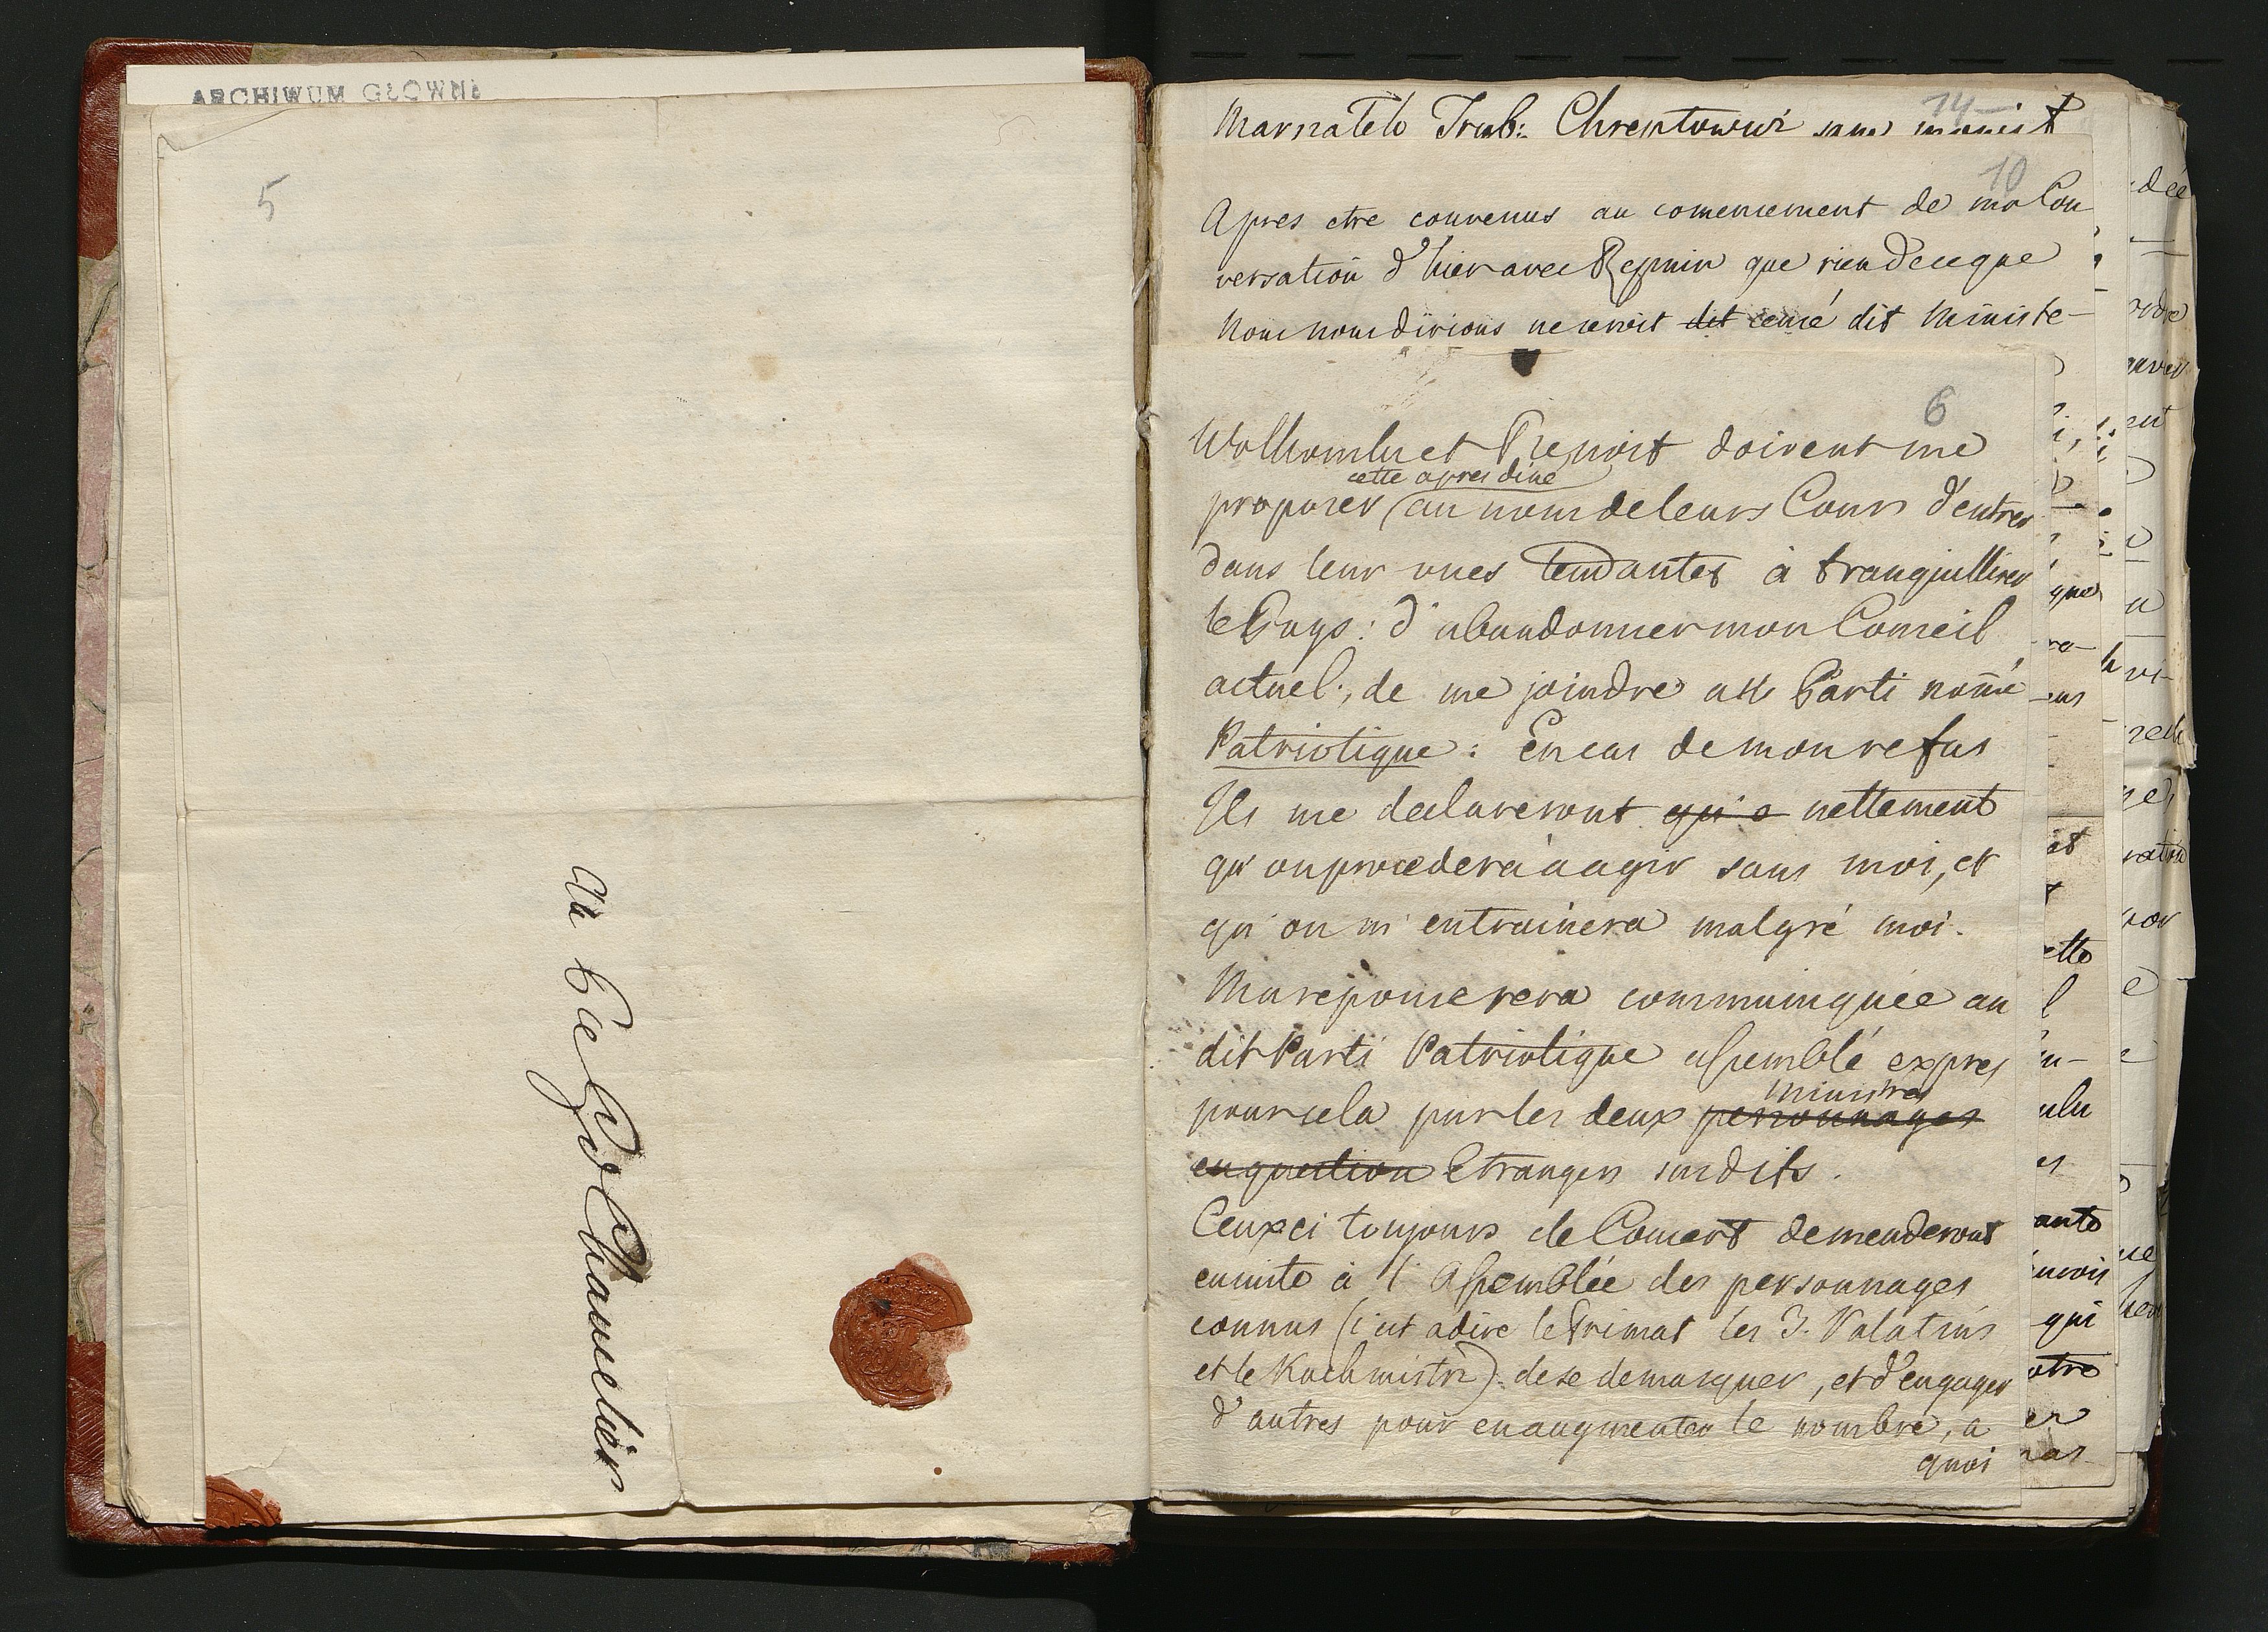 ARCHIWUM GŁOWNE
5
Au P. ce G. d Chancelier
14
Marszałek Trub: Chreptowicz sans manist
10
Apres etre convenus au comencement de ma Con
versation d'hier avec Repnin que rien de ce que
Nous nous dirions ne seroit dit censé dit Ministe-
6
Wolkonski et Benoit doivent me
cette apres diné
proposer (au nom de leurs Cours d'entrer
dans leur vues tendantes à tranquilliser
le Pays: d'abandonner mon Conseil
actuel; de me joindre au Parti nom̄é
Patriotique: En cas de mon refus
Ils me declareront qu'o nettement
qu'on procedera à agir sans moi, et
qu'on m'entrainera malgré moi.
Ma reponse sera communiquée au
dit Parti Patriotique assemblé expres
ministres
pour cela par les deux personnages
en question Etrangers susdits.
Ceux ci toujours de Concert demenderont
ensuite à l'Assemblée des personnages
connus (c'est a dire le Primat les 3. Palatins
et le Kuchmistrz) de se demasquer, et d'engager
d'autres pour en augmenter le nombre, a
quoi